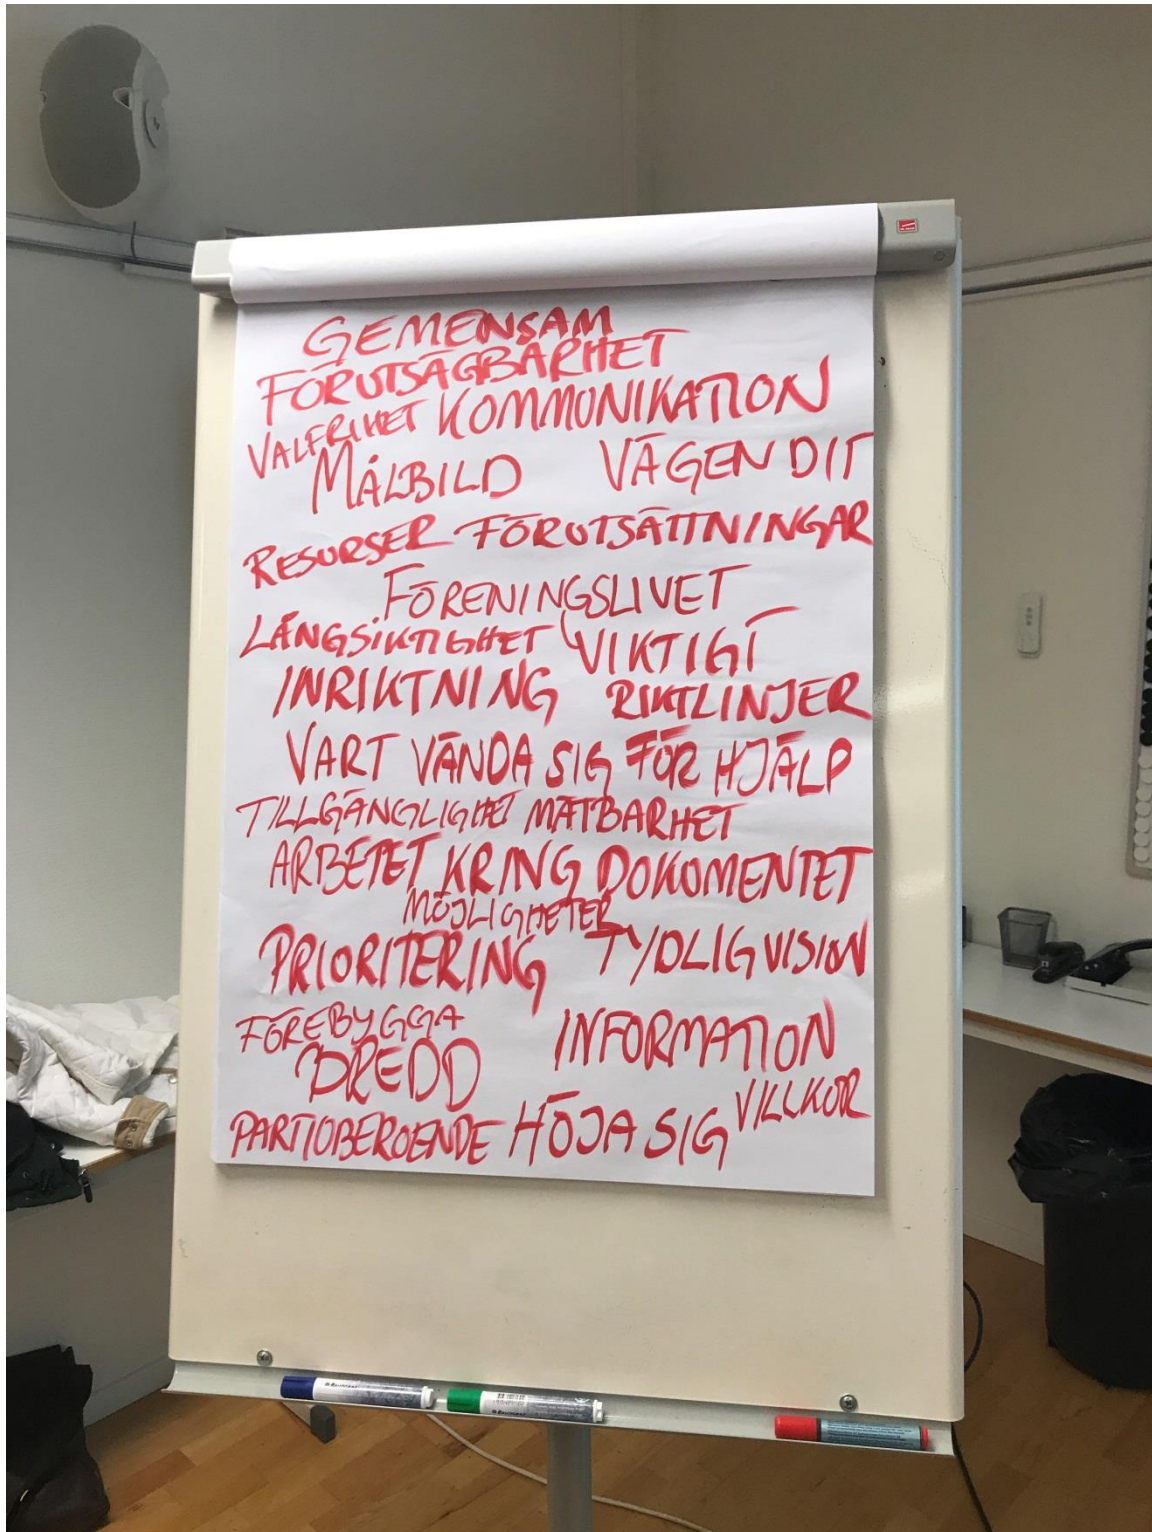 GEMENSAM
FÖRUTSÄGBARHET
VALFRIHET KOMMUNIKATION
MÅLBILD VÄGEN DIT
RESURSER FÖRUTSÄTTNINGAR
FÖRENINGSLIVET
LÅNGSIKTIGHET VIKTIGT
INRIKTNING RIKTLINJER
VART VÄNDA SIG FÖR HJÄLP
TILLGÄNGLIGHET MÄTBARHET
ARBETET KRING DOKUMENTET
MÖJLIGHETER
PRIORITERING TYDLIG VISION
FÖREBYGGA INFORMATION
BREDD
PARTIOBEROENDE HÖJA SIG VILLKOR